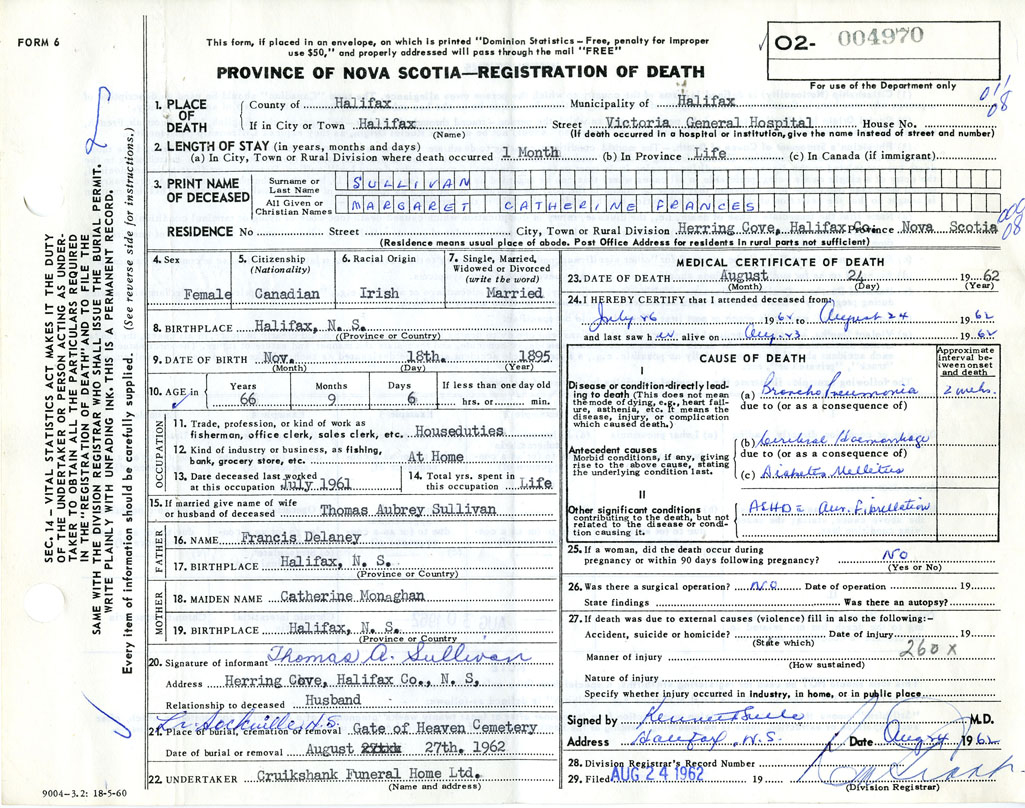 FORM 6
This form, if placed in an envelope, on which is printed "Dominion Statistics – Free, penalty for improper
use $50," and properly addressed will pass through the mail "FREE"
PROVINCE OF NOVA SCOTIA—REGISTRATION OF DEATH
02- 004970
For use of the Department only
SEC. 14 – VITAL STATISTICS ACT MAKES IT THE DUTY
OF THE UNDERTAKER OR PERSON ACTING AS UNDER-
TAKER TO OBTAIN ALL THE PARTICULARS REQUIRED
IN THE "REGISTRATION OF DEATH" AND TO FILE THE
SAME WITH THE DIVISION REGISTRAR WHO SHALL ISSUE THE BURIAL PERMIT.
WRITE PLAINLY WITH UNFADING INK. THIS IS A PERMANENT RECORD.
Every item of information should be carefully supplied. (See reverse side for instructions.)
1. PLACE OF DEATH
County of Halifax Municipality of Halifax
01/08
If in City or Town Halifax Street Victoria General Hospital House No.
(Name) (If death occurred in a hospital or institution, give the name instead of street and number)
2. LENGTH OF STAY (in years, months and days)
(a) In City, Town or Rural Division where death occurred 1 Month (b) In Province Life (c) In Canada (if immigrant)
3. PRINT NAME OF DECEASED
Surname or Last Name SULLIVAN
All Given or Christian Names MARGARET CATHERINE FRANCES
RESIDENCE No Street City, Town or Rural Division Herring Cove, Halifax Co. Province Nova Scotia
08
(Residence means usual place of abode. Post Office Address for residents in rural parts not sufficient)
4. Sex Female
5. Citizenship (Nationality) Canadian
6. Racial Origin Irish
7. Single, Married, Widowed or Divorced (write the word) Married
8. BIRTHPLACE Halifax, N. S.
(Province or Country)
9. DATE OF BIRTH Nov. 18th. 1895
(Month) (Day) (Year)
10. AGE in Years 66 Months 9 Days 6 If less than one day old hrs. or min.
OCCUPATION
11. Trade, profession, or kind of work as
fisherman, office clerk, sales clerk, etc. Houseduties
12. Kind of industry or business, as fishing,
bank, grocery store, etc. At Home
13. Date deceased last worked at this occupation July 1961
14. Total yrs. spent in this occupation Life
15. If married give name of wife
or husband of deceased Thomas Aubrey Sullivan
FATHER
16. NAME Francis Delaney
17. BIRTHPLACE Halifax, N. S.
(Province or Country)
MOTHER
18. MAIDEN NAME Catherine Monaghan
19. BIRTHPLACE Halifax, N. S.
(Province or Country
20. Signature of informant Thomas A. Sullivan
Address Herring Cove, Halifax Co., N. S,
Relationship to deceased Husband
Lr. Sackville, N.S.
21. Place of burial, cremation or removal Gate of Heaven Cemetery
Date of burial or removal August 27th. 1962
22. UNDERTAKER Cruikshank Funeral Home Ltd.
(Name and address)
9004-3.2: 18-5-60
MEDICAL CERTIFICATE OF DEATH
23. DATE OF DEATH August 24 1962
(Month) (Day) (Year)
24. I HEREBY CERTIFY that I attended deceased from
July 26 1962 to August 24 1962
and last saw her alive on Aug. 23 1962
CAUSE OF DEATH
Approximate interval between onset and death
I
Disease or condition directly lead-
ing to death (This does not mean
the mode of dying, e.g., heart fail-
ure, asthenia, etc. It means the
disease, injury, or complication
which caused death.)
(a) Broncho Pneumonia 2 weeks.
due to (or as a consequence of)
Antecedent causes
Morbid conditions, if any, giving
rise to the above cause, stating
the underlying condition last.
(b) Cerebral Haemorrhage
due to (or as a consequence of)
(c) Diabetes Mellitus
II
Other significant conditions
contributing to the death, but not
related to the disease or condi-
tion causing it.
ASHD = Aur. Fibrillation
25. If a woman, did the death occur during
pregnancy or within 90 days following pregnancy? NO
(Yes or No)
26. Was there a surgical operation? NO Date of operation 19
State findings Was there an autopsy?
27. If death was due to external causes (violence) fill in also the following:-
Accident, suicide or homicide? Date of injury 19
(State which) 260X
Manner of injury
(How sustained)
Nature of injury
Specify whether injury occurred in industry, in home, or in public place
Signed by M.D.
Address Halifax, N.S. Date Aug 24 1962
28. Division Registrar's Record Number
29. Filed AUG 24 1962 19
(Division Registrar)